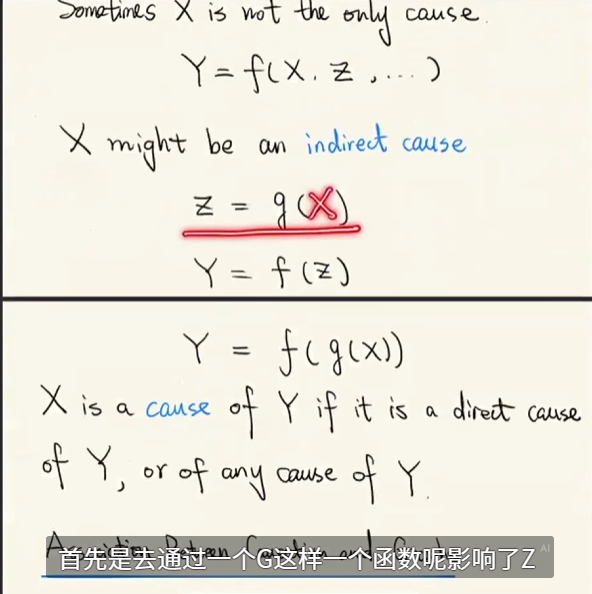 Sometimes X is not the only cause.
Y = f(X, Z, ...)
X might be an indirect cause
Z = g(X)
Y = f(Z)
Y = f(g(X))
X is a cause of Y if it is a direct cause
of Y, or of any cause of Y.
首先是去通过一个G这样一个函数呢影响了Z
AI